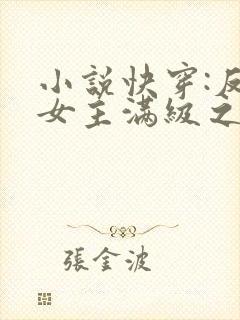 小說快穿:反
女主滿級之
張金波